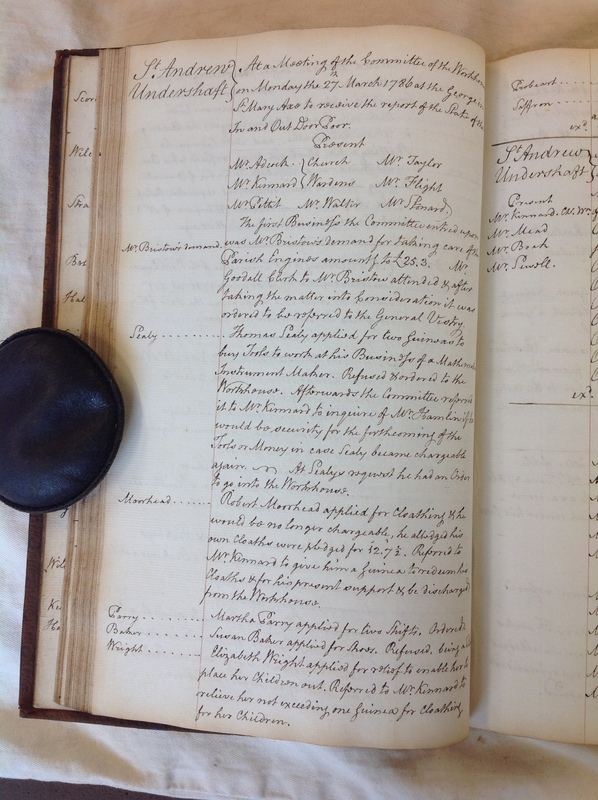 St. Andrew
Undershaft
At a Meeting of the Committee of the Workhouse
on Monday the 27 March 1786 at the George in
St. Mary Axe to receive the report of the State of the
In and Out Door Poor.
Present
Mr. Adcock. Church Mr. Taylor
Mr. Kinnard Wardens Mr. Flight
Mr. Pettit Mr. Walter Mr.
The first Business the Committee entred upon
Mr. Bristow's demand. was Mr. Bristow's demand for taking care of the
Parish Engines amounts to £25.3. Mr.
Goodall Clerk to Mr. Bristow attended & after
taking the matter into Consideration it was
ordered to be referred to the General Vestry.
Sealy ......... Thomas Sealy applied for two Guineas to
buy Tools to work at his Business of a Mathem
Instrument Maker. Refused & ordered to the
Workhouse. Afterwards the Committee referred
it to Mr. Kinnard to inquire of Mr. Hamlin if he
would be security for the forthcoming of the
Tools or Money in case Sealy became chargeable
again. At Sealys request he had an Order
to go into the Workhouse.
Moorhead ...... Robert Moorhead applied for Cloathing & he
would be no longer chargeable, he alledged his
own Cloaths were pledged for £2.7.½. Referred to
Mr. Kinnard to give him a Guinea to redeem his
Cloaths & for his present support & be discharged
from the Workhouse.
Parry ....... Martha Parry applied for two Shifts. Ordered.
Baker ....... Susan Baker applied for Shoes. Refused. being a
Wright ...... Elizabeth Wright applied for relief to enable her to
place her Children out. Referred to Mr. Kinnard to
relieve her not exceeding one Guinea for Cloathing
for her Children.
Probeart ....
Saffron ....
exd.
St. Andrew
Undershaft
Present
Mr. Kinnard. Ch. Wn.
Mr. Mead
Mr. Boak
Mr. Sewell.
exd.